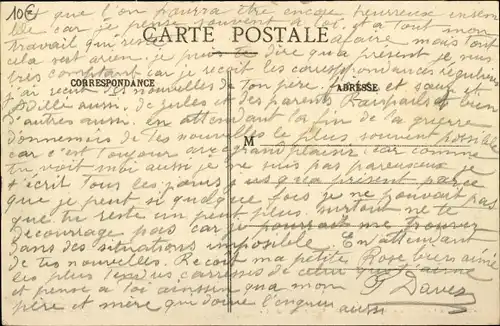 10
et que l'on pourra être encore heureux ensem
ble car je pense souvent à toi et a tout mon
CARTE POSTALE
travail qui reste a faire mais tout
cela n'est rien je puis te dire qu'a présent je suis
très comptant car je reçoit les correspondances
CORRESPONDANCE
ADRESSE
j'ai reçut des nouvelles de ton père et sœur et
aussi de Jules et des parents et bien
d'autres aussi. en attendant la fin de la guerre
donne moi de tes nouvelles le plus souvent possible
M
car c'est toujours avec grand plaisir car comme
tu voit moi aussi je ne suis pas pareuseux je
t'écrit tous les jours jusqu'a présent parce
que je peut si quelque fois je ne pouvait pas
que tu reste un peut plus surtout ne te
décourage pas car je pourrait me trouver
dans des situations impossible. En attendant
de tes nouvelles. Reçoit ma petite Rose bien aimé
les plus tendres caresses de celui qui t'aime
et pense à toi ainsi qu'a mon
père et mère qui doive l'enguer aussi